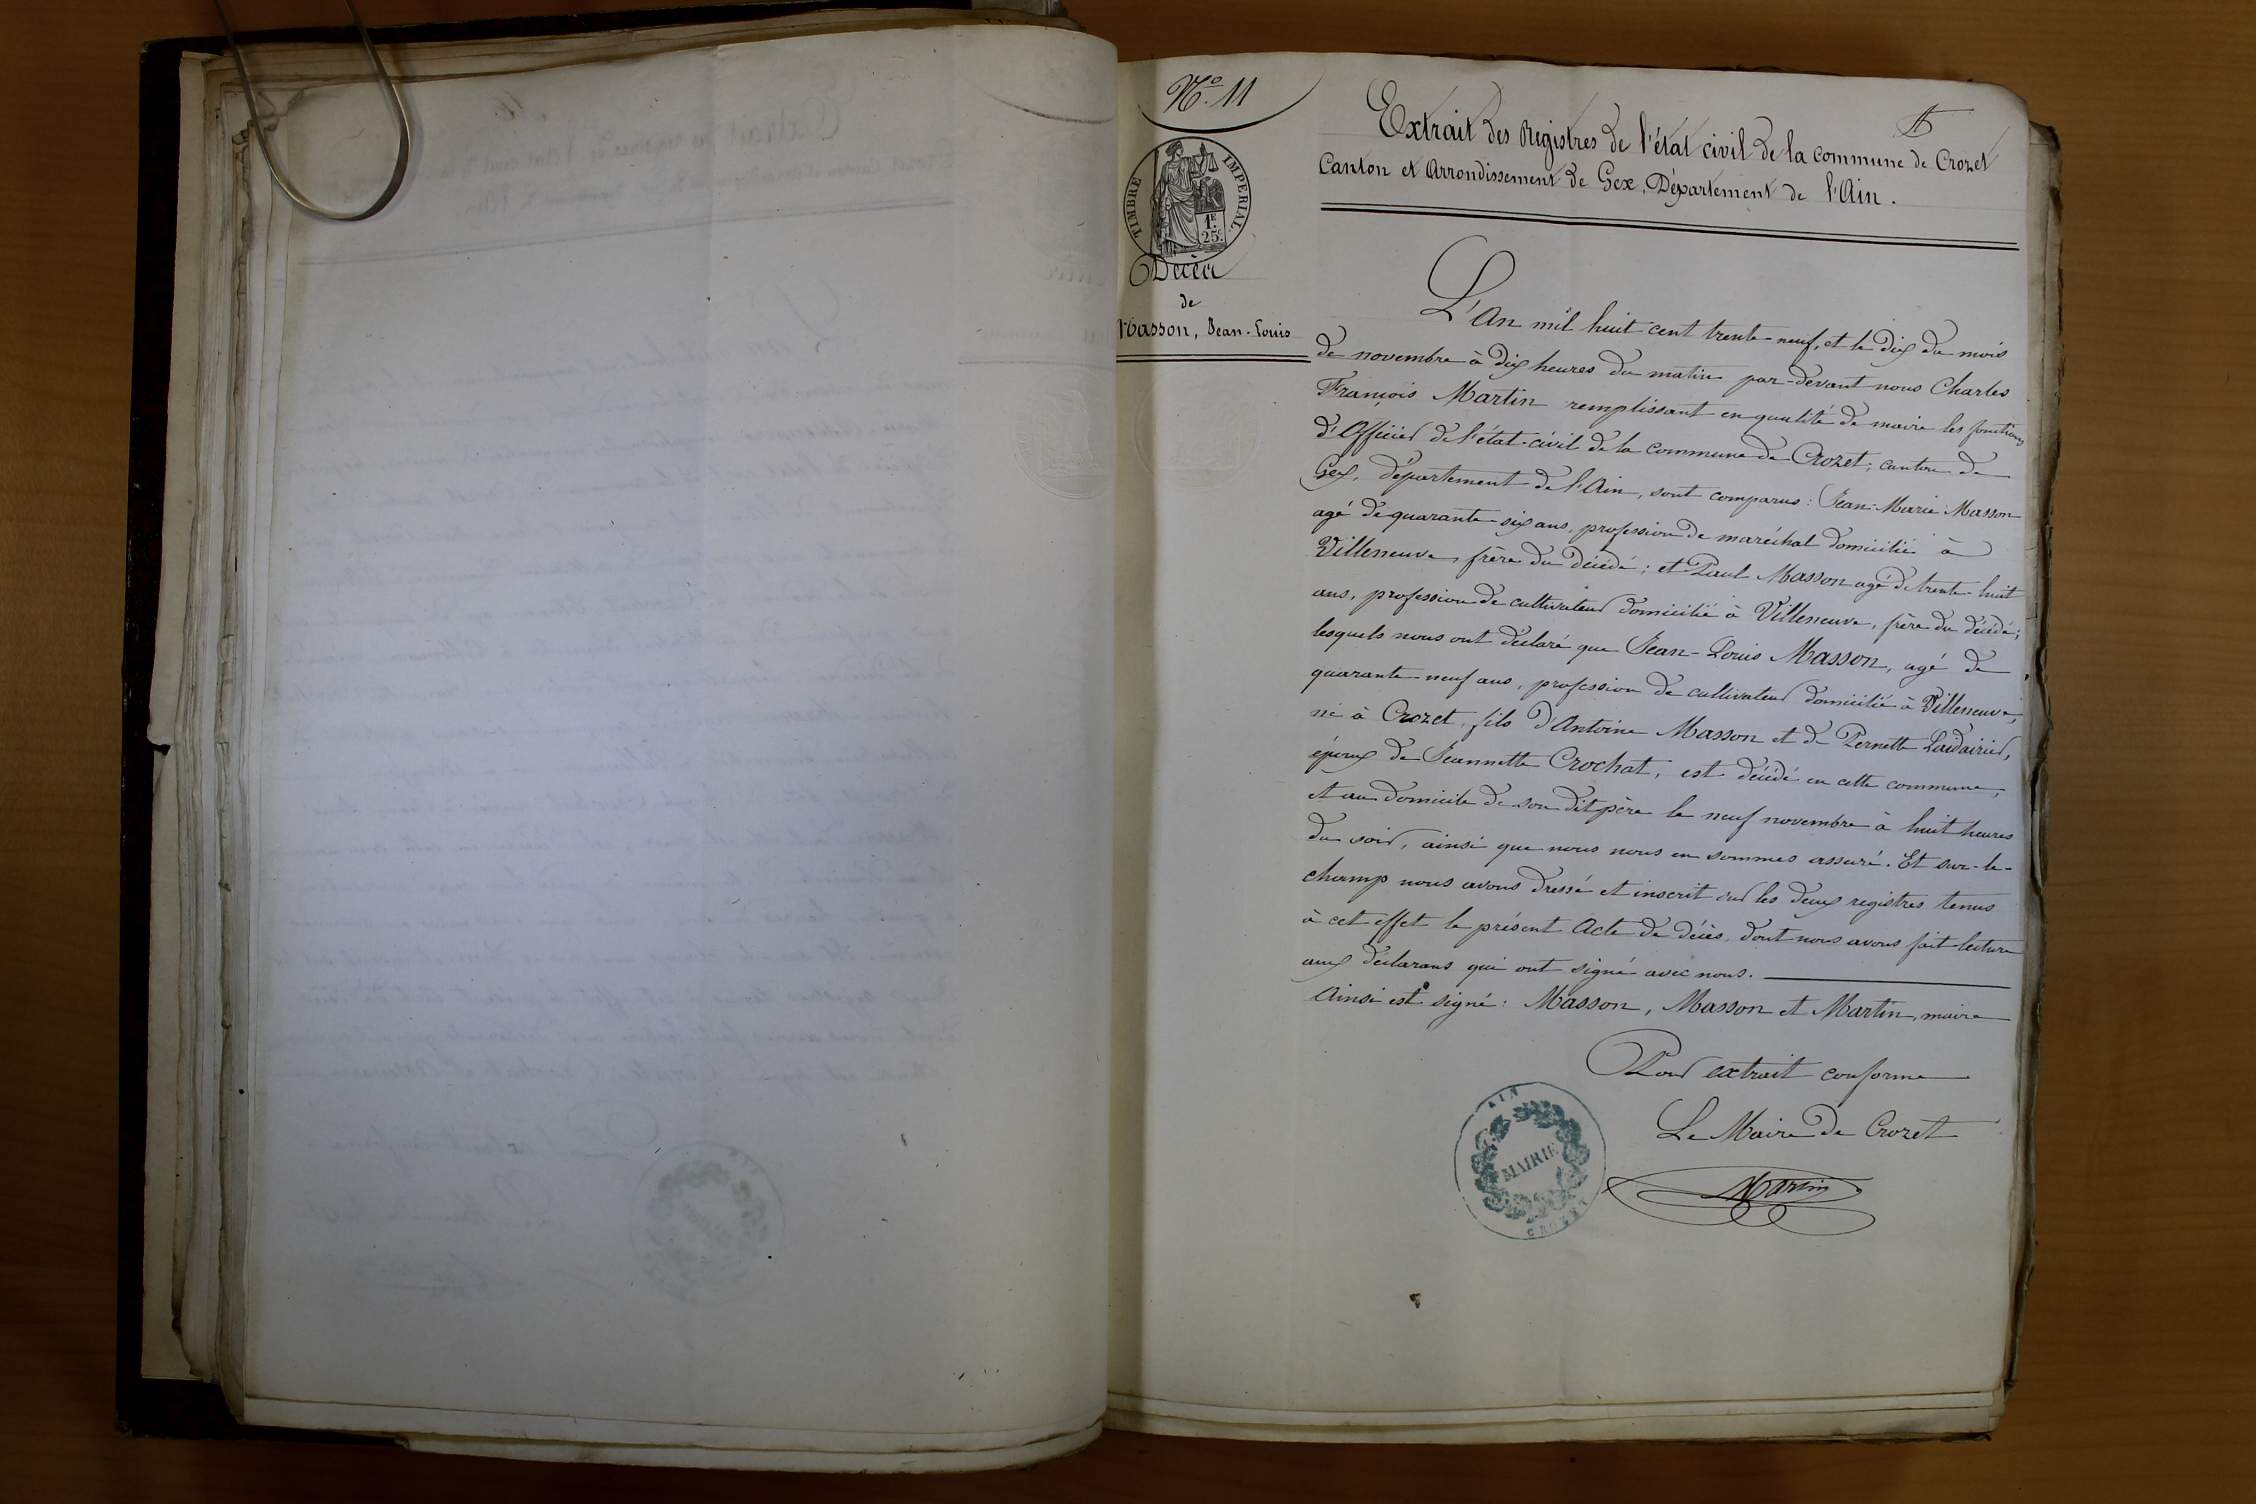 N.o 11
TIMBRE IMPERIAL
1F.
25c.
Décès
de
Masson, Jean-Louis
Extrait des Registres de l'état civil de la commune de Crozet
Canton et Arrondissement de Gex, Département de l'Ain.
L'An mil huit cent trente-neuf, et le dix du mois
de novembre à dix heures du matin par-devant nous Charles
François Martin remplissant en qualité de maire les fonctions
d'Officier de l'état-civil de la commune de Crozet, canton de
Gex, département de l'Ain, sont comparus: Jean-Marie Masson
agé de quarante-six ans, profession de maréchal domicilié à
Villeneuve, frère du décédé; et Paul Masson agé de trente-huit
ans, profession de cultivateur domicilié à Villeneuve, frère du décédé;
lesquels nous ont déclaré que Jean-Louis Masson, agé de
quarante-neuf ans, profession de cultivateur domicilié à Villeneuve,
né à Crozet, fils d'Antoine Masson et de Pernette
époux de Jeannette Crochat, est décédé en cette commune,
et au domicile de son dit père le neuf novembre à huit heures
du soir, ainsi que nous nous en sommes assuré. Et sur-le-
champ nous avons dressé et inscrit sur les deux registres tenus
à cet effet le présent Acte de décès, dont nous avons fait lecture
aux déclarans qui ont signé avec nous.
Ainsi est signé: Masson, Masson et Martin, maire
Pour extrait conforme
Le Maire de Crozet
Martin
AIN
MAIRIE
CROZET